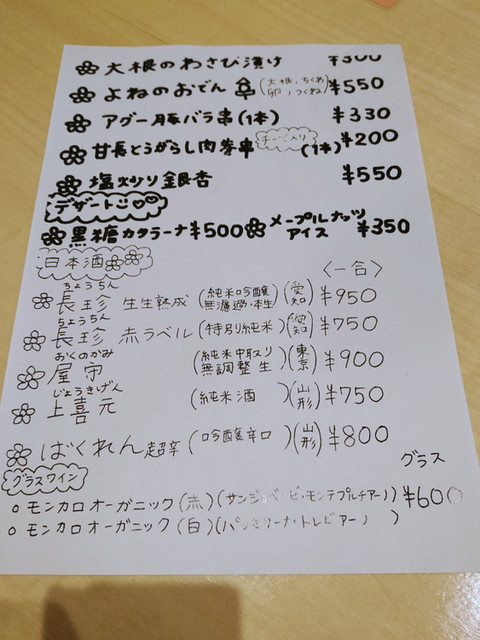 大根のわさび漬け ¥300
よねのおでん (大根、ちくわ 卵、つくね) ¥550
アグー豚バラ串(1本) ¥330
甘長とうがらし肉巻串 チーズ入り (1本) ¥200
塩炒り銀杏 ¥550
デザート
黒糖カタラーナ ¥500 メープルナッツアイス ¥350
日本酒 〈一合〉
ちょうちん
長珍 生生熟成 (純米吟醸 無濾過・本生) (愛知) ¥950
ちょうちん
長珍 赤ラベル (特別純米) (愛知) ¥750
おくのかみ
屋守 (純米中取り 無調整生) (東京) ¥900
じょうきげん
上喜元 (純米酒) (山形) ¥750
ばくれん 超辛 (吟醸辛口) (山形) ¥800
グラスワイン グラス
モンカロオーガニック(赤)(サンジョベーゼ・モンテプルチアーノ) ¥600
モンカロオーガニック(白)(パッセリーナ・トレビアーノ)